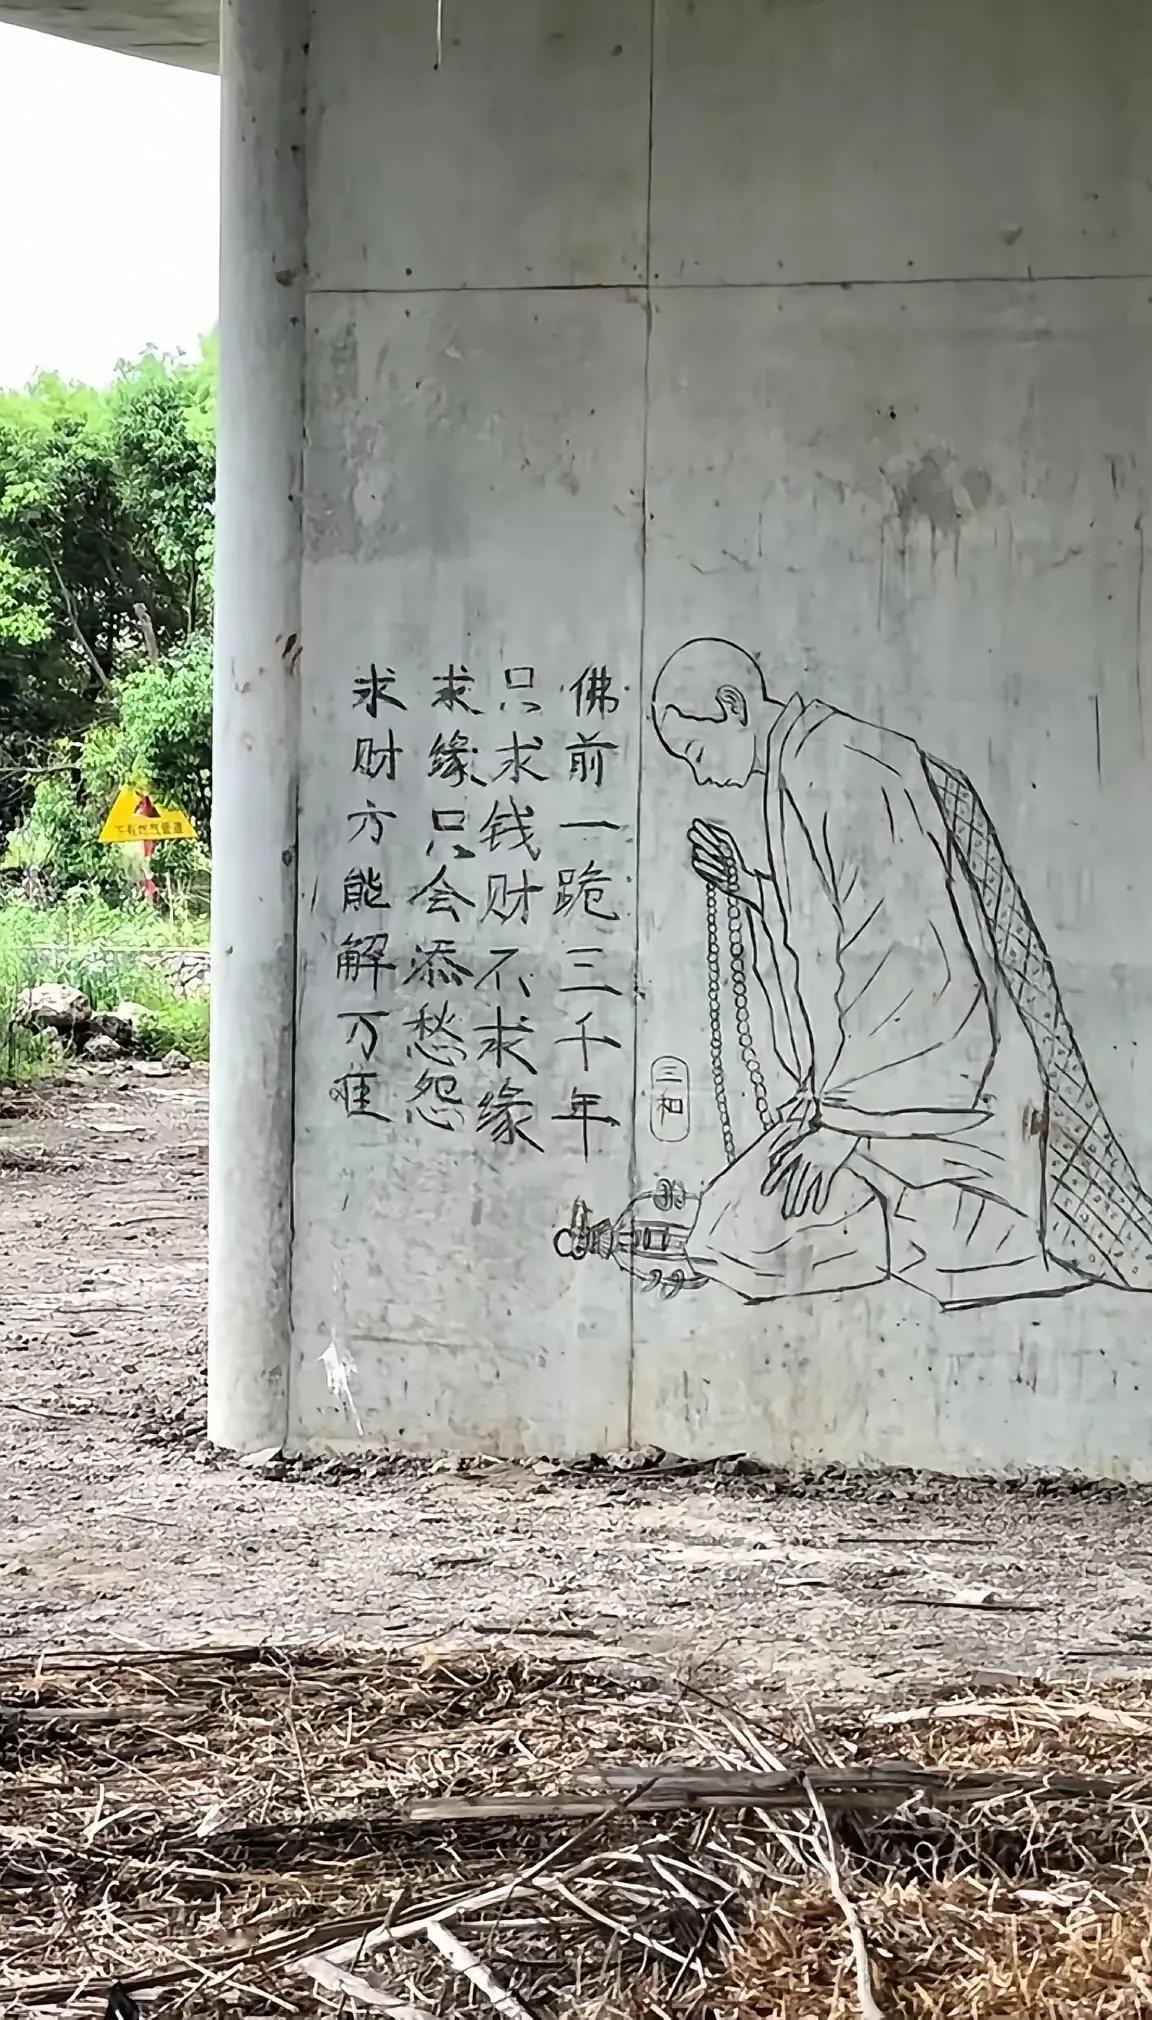 佛前一跪三千年
只求钱财不求缘
求缘只会添愁怨
求财方能解万难
三和
下有燃气管道